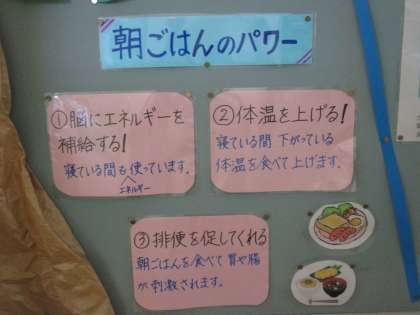 朝ごはんのパワー
①脳にエネルギーを
補給する!
寝ている間も使っています。
エネルギー
②体温を上げる!
寝ている間 下がっている
体温を食べて上げます。
③排便を促してくれる
朝ごはんを食べて 胃や腸
が刺激されます。